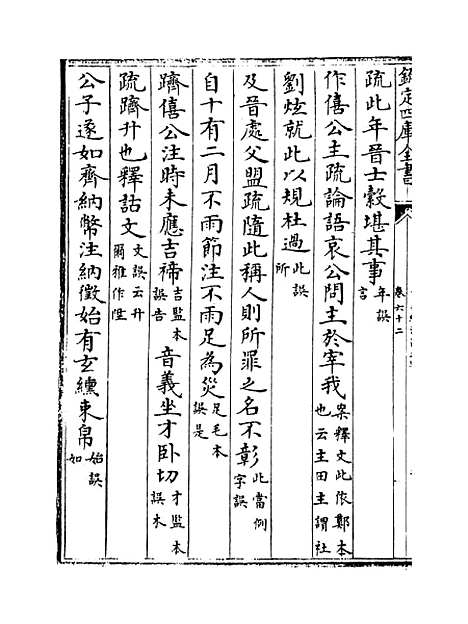 欽定四庫全書
卷六十二
疏此年晉士縠堪其事年誤言
作僖公主疏論語哀公問主於宰我案釋文此依鄭本也云主田主謂社
劉炫就此以規杜過此誤所
及晉處父盟疏隨此稱人則所罪之名不彰此當例字誤
自十有二月不雨節注不雨足為災足毛本誤是
躋僖公注時未應吉禘吉監本誤告 音義坐才卧切才監本誤木
疏躋升也釋詁文文誤云升爾雅作陞
公子遂如齊納幣注納徵始有玄纁束帛始誤如